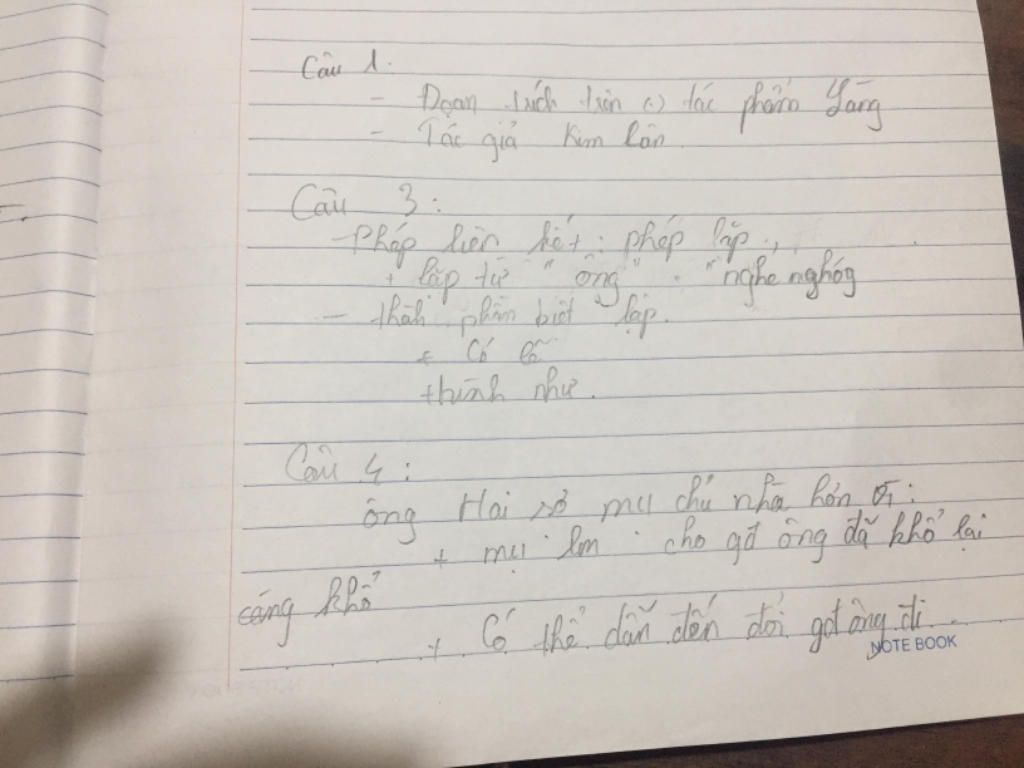 Câu 1.
- Đoạn trích trên (.) tác phẩm Làng
- Tác giả Kim Lân.
Câu 3:
- Phép liên kết: phép lặp.,
+ lặp từ "ông". "nghe nghóg
- thàh phần biệt lập.
+ Có lẽ
+ hình như.
Câu 4:
ông Hai sợ mụ chủ nhà hơn vì:
+ mụ cho gđ ông đã khổ lại
càng khổ
+ Có thể dẫn đến đổi gđ ông đi.
NOTE BOOK